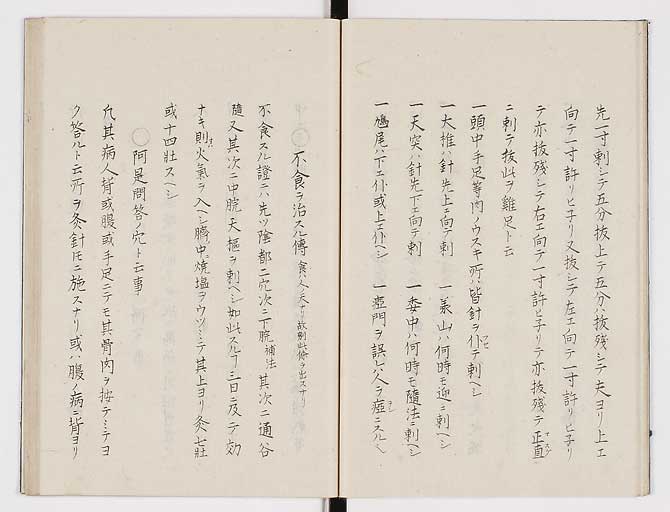 先一寸刺シテ五分抜上テ五分ハ抜残シテ夫ヨリ上エ
向テ一寸許リヒ子リ又抜シテ左エノ向テ一寸許リヒ子リ
テ亦抜残シテ右エ向テ一寸許ヒ子リテ亦抜残テ正直
ニ刺テ抜此ヲ雞足ト云
一頭中手足等肉ノウスキ所ハ皆針ヲ仆テ刺ヘシ
一大椎ハ針先上エ向テ刺 一義山ハ何時モ迎ニ刺ヘシ
一天突ハ針先下エ向テ刺 一委中ハ何時モ隨法ニ刺ヘシ
一鳩尾ハ下エ仆或上エ仆ヘシ 一瘂門ヲ誤レハ人ヲ瘂ニスル
○不食ヲ治スル傳 食ハ人ノ天ナリ故別此條ヲ出スナリ
不食スル證ニハ先ツ陰都ニ穴次ニ下脘補法 其次ニ通谷
隨又其次ニ中脘天樞ヲ刺ヘシ如此スルヿ三日ニ及テ効
ナキ則火氣ヲ入ヘシ臍中燒塩ヲウツミテ其上ヨリ灸七壯
或十四壯スヘシ
○阿是問答ノ穴ト云事
凡其病人背或腹或手足ニテモ其骨肉ヲ按テミテヨ
ク答ルト云所ヲ灸針𪜈ニ施スナリ或ハ腹ノ病ニ背ヨリ